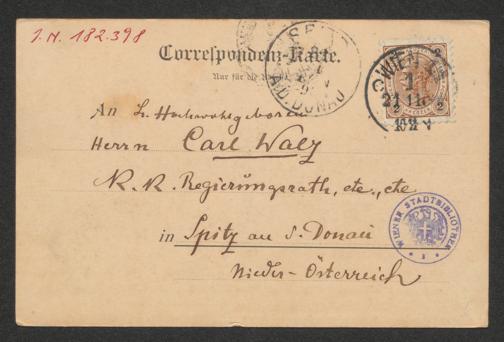 J. N. 182.398
Correspondenz-Karte.
Nur für die
An Sr. Hochwohlgeboren
Herrn Carl Walz
K. K. Regierungsrath, etc., etc
in Spitz an d. Donau
Nieder-Österreich
WIEN
1
SPITZ
A/D. DONAU
WIENER STADTBIBLIOTHEK